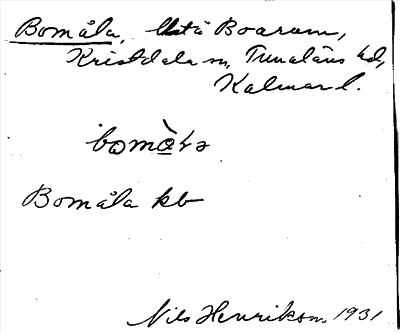 Bomåla, Boarum,
Kristdala sn, Tunaläns hd,
Kalmar l.
Bomåla kb
Nils Henrikson 1931